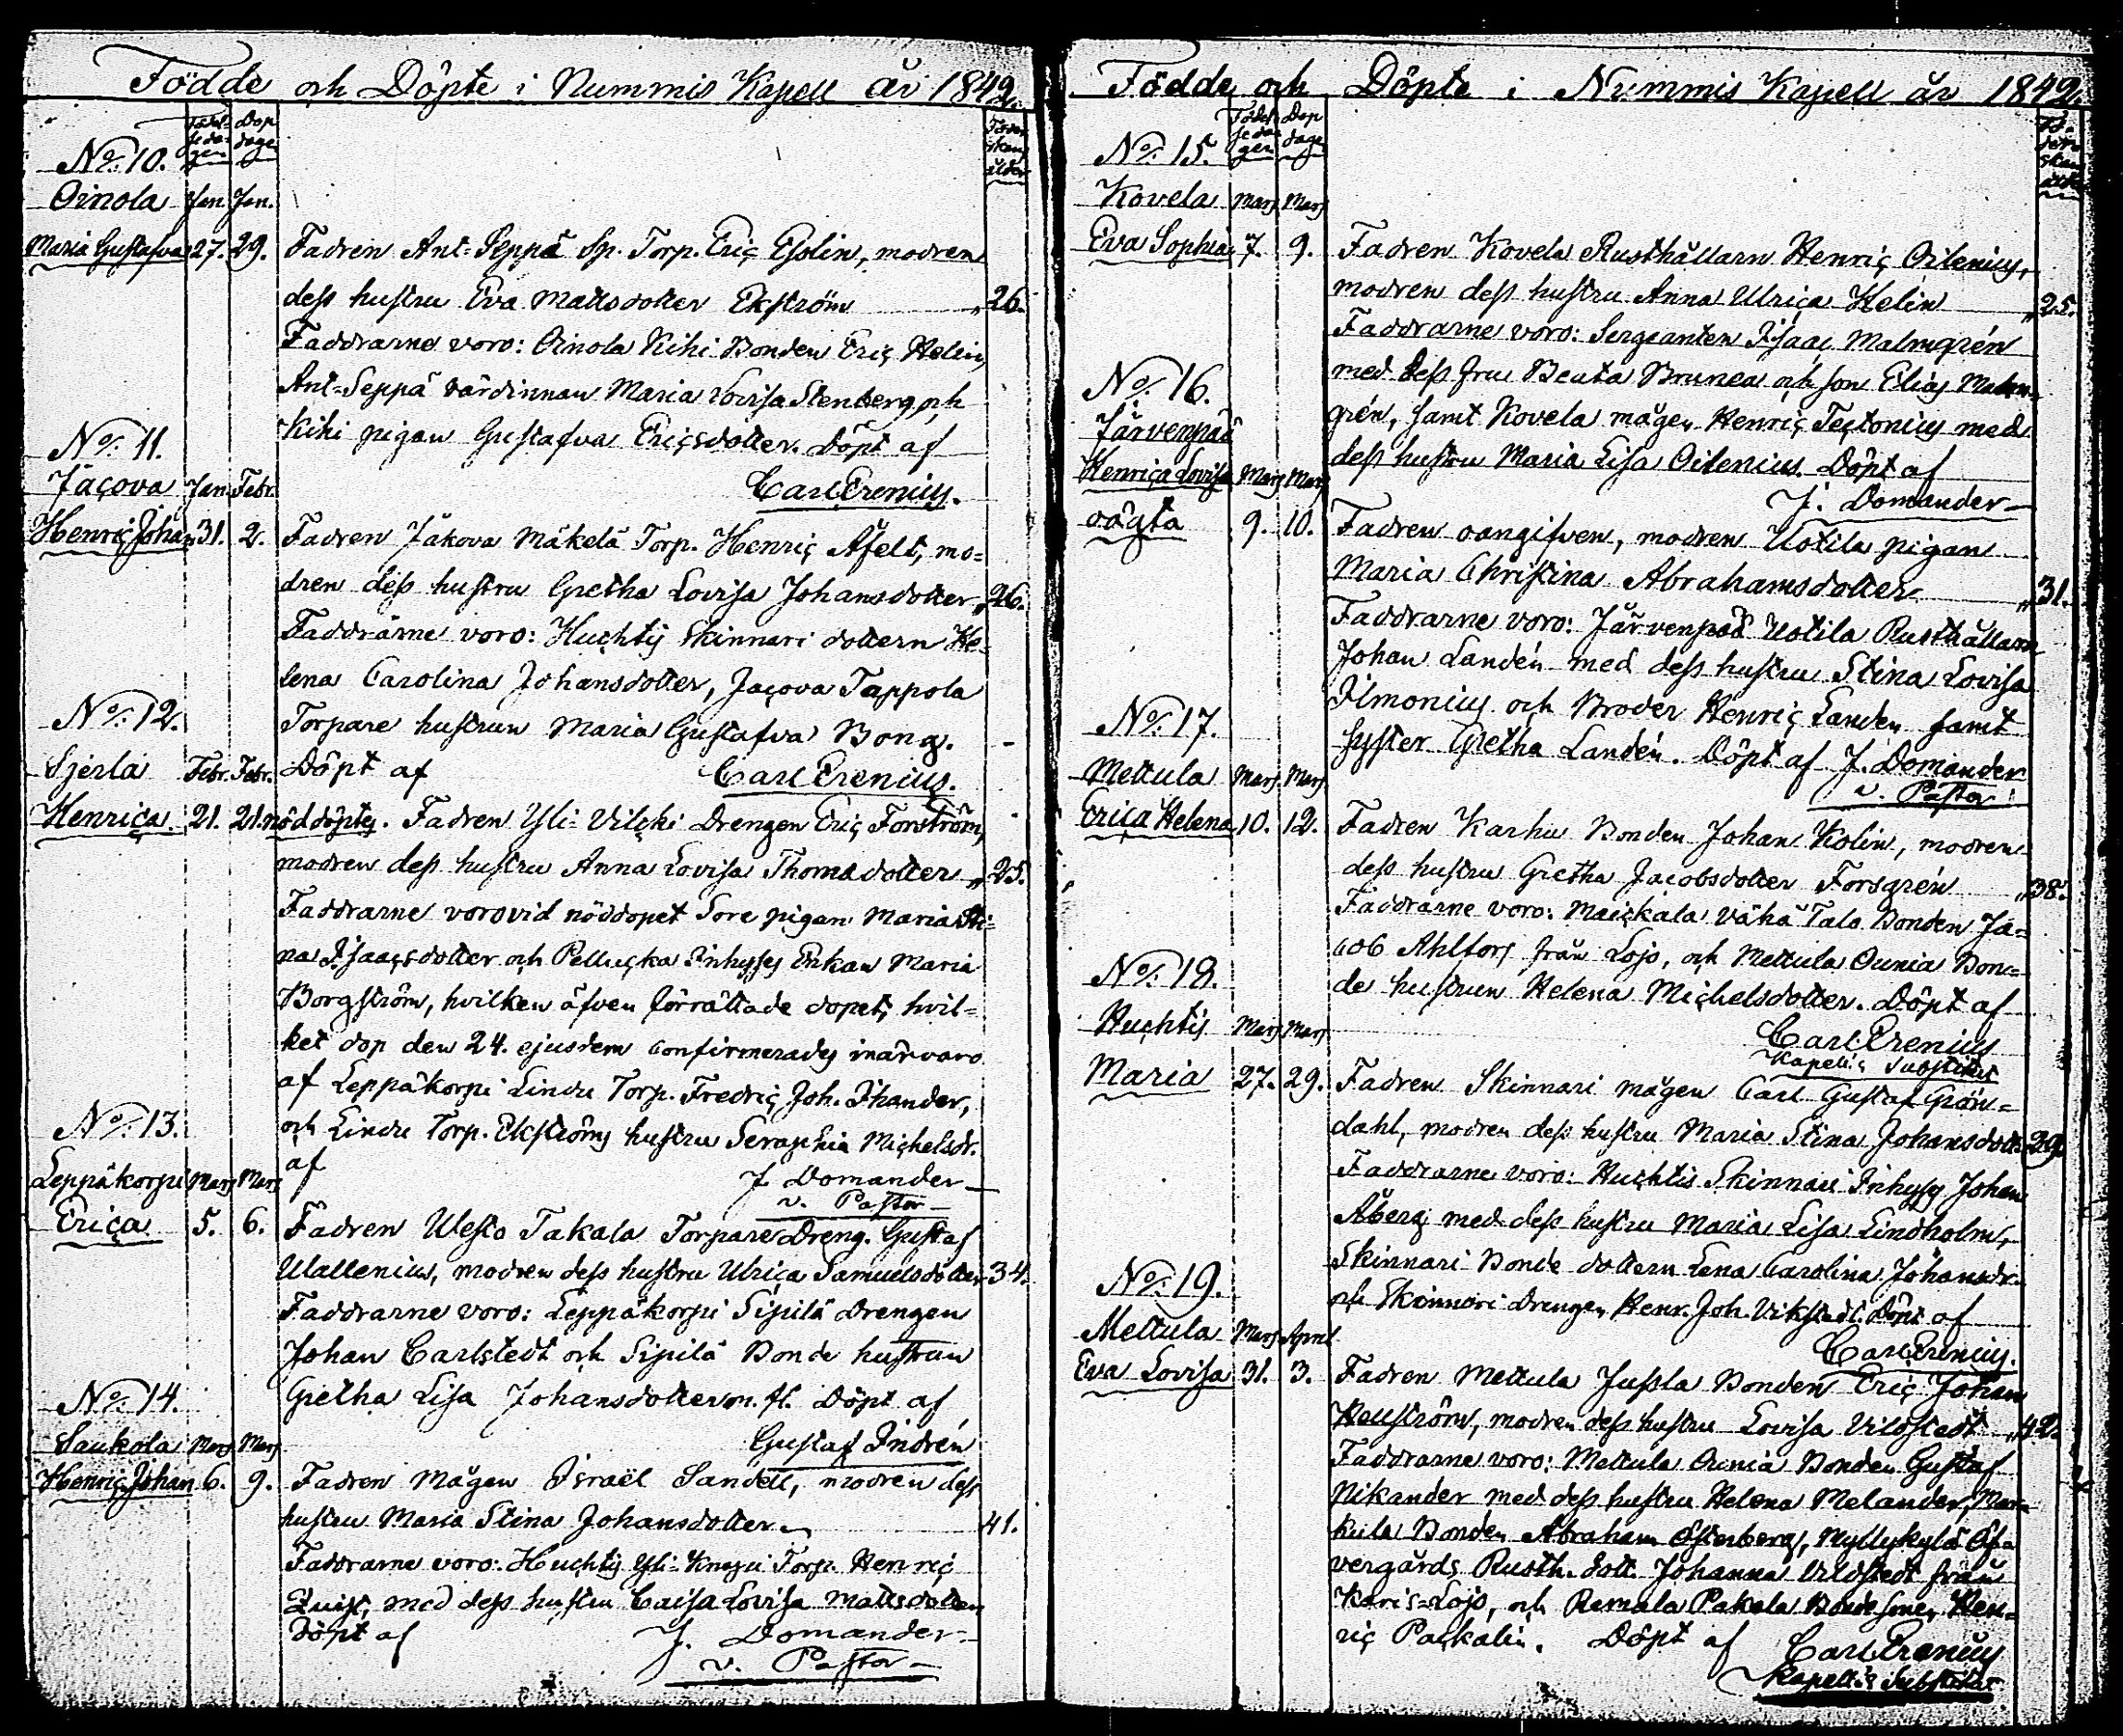 Födde och Döpte i Nummis Kapell år 1842.
Födel-
seda-
gen
Dop
dagen
Föder-
skans
ålder
No: 10.
Oinola Jan. Jan.
Maria Gustafva 27. 29. Fadren Ant-Seppä Sp. Torp. Eric Eslin, modren
dess hustru Eva Mattsdotter Ekström „ 26.
Faddrarne voro: Oinola Kihi Bonden Eric Helin,
Ant-Seppä värdinnan Maria Lovisa Stenberg och
Kihi pigan Gustafva Ericsdotter. Döpt af
Carl Erenius.
No: 11.
Jacova Jan. Febr.
Henric Johan 31. 2. Fadren Jäkova Mäkelä Torp. Henric Åfelt, mo-
dren dess hustru Gretha Lovisa Johansdotter „ 26.
Faddrarne voro: Huchtis Skinnari dottern He-
lena Carolina Johansdotter, Jacova Tappola
Torpare hustrun Maria Gustafva Bong.
Döpt af Carl Erenius.
No: 12.
Sjerla Febr. Febr.
Henrica 21. 21. nöddöptes. Fadren Yli-Vilchi Drengen Eric Forström,
modren dess hustru Anna Lovisa Thomasdotter „ 25.
Faddrarne voro vid nöddopet Sore pigan Maria Sti-
na Isaacsdotter och Pellucka Inhyses Enkan Maria
Borgström, hvilken äfven förrättade dopet, hvil-
ket dop den 24. ejusdem confirmerades i närvaro
af Leppäkorpi Lindu Torp. Fredric Joh. Ihander,
och Lindu Torp. Ekströms hustru Seraphia Michelsdr.
af J. Domander
v. Pastor
No: 13.
Leppäkorpi Mars Mars
Erica 5. 6. Fadren Wesco Takala Torpare Dreng. Gustaf
Wallenius, modren dess hustru Ulrica Samuelsdotter 34.
Faddrarne voro: Leppäkorpi Sipilä Drengen
Johan Carlstedt och Sipilä Bonde hustrun
Gretha Lisa Johansdotter m. fl. Döpt af
Gustaf Indrén
No: 14.
Saukola Mars Mars
Henric Johan 6. 9. Fadren mågen Israël Sandell, modren dess
hustru Maria Stina Johansdotter „ 41.
Faddrarne voro: Huchtis Yli-Knapi Torp. Henric
Quist, med dess hustru Caisa Lovisa Mattsdotter
Döpt af J. Domander
v. Pastor
Födde och Döpte i Nummis Kapell år 1842.
Födel-
seda-
gen
Dop
dagen
Fö-
der-
skans
ålder
No: 15.
Kovela Mars Mars
Eva Sophia 7. 9. Fadren Kovela Rusthållarn Henric Oilenius,
modren dess hustru Anna Ulrica Helin „ 25.
Faddrarne voro: Sergeanten Isaac Malmgrén
med dess fru Beata Brunea och son Elias Malm-
grén, samt Kovela mågen Henric Tectonius med
dess hustru Maria Lisa Oilenius. Döpt af
J. Domander
No: 16.
Järvenpää
Henrica Lovisa Mars Mars
oägta 9. 10. Fadren oangifven, modren Uotila pigan
Maria Christina Abrahamsdotter „ 31.
Faddrarne voro: Järvenpää Uotila Rusthållarn
Johan Landén med dess hustru Stina Lovisa
Ilmonius och Broder Henric Landén samt
syster Gretha Landén. Döpt af J. Domander
v. Pastor
No: 17.
Mettula Mars Mars
Erica Helena 10. 12. Fadren Karhu Bonden Johan Kolin, modren
dess hustru Gretha Jacobsdotter Forsgrén „ 38.
Faddrarne voro: Maickala Vähä Talo Bonden Ja-
cob Ahlfors från Lojo, och Mettula Ounia Bon-
de hustrun Helena Michelsdotter. Döpt af
Carl Erenius
Kapell:s Substitut
No: 18.
Huchtis Mars Mars
Maria 27. 29. Fadren Skinnari mågen Carl Gustaf Grön-
dahl, modren dess hustru Maria Stina Johansdott. 29.
Faddrarne voro: Huchtis Skinnari Inhyses Johan
Åberg med dess hustru Maria Lisa Lindholm,
Skinnari Bonde dottern Lena Carolina Johansdr.
och Skinnari Drengen Henr. Joh. Vikstedt. Döpt af
Carl Erenius.
No: 19.
Mettula Mars April
Eva Lovisa 31. 3. Fadren Mettula Jussla Bonden Eric Johan
Hellström, modren dess hustru Lovisa Vildstedt „ 42.
Faddrarne voro: Mettula Ounia Bonden Gustaf
Nikander med dess hustru Helena Melander, Mar-
kula Bonden Abraham Österberg, Myllykylä Öf-
vergårds Rusth. dott. Johanna Vildstedt från
Karis-Lojo, och Remala Pakala Bondesonen Hen-
ric Packalin. Döpt af Carl Erenius
Kapell:s Substitut